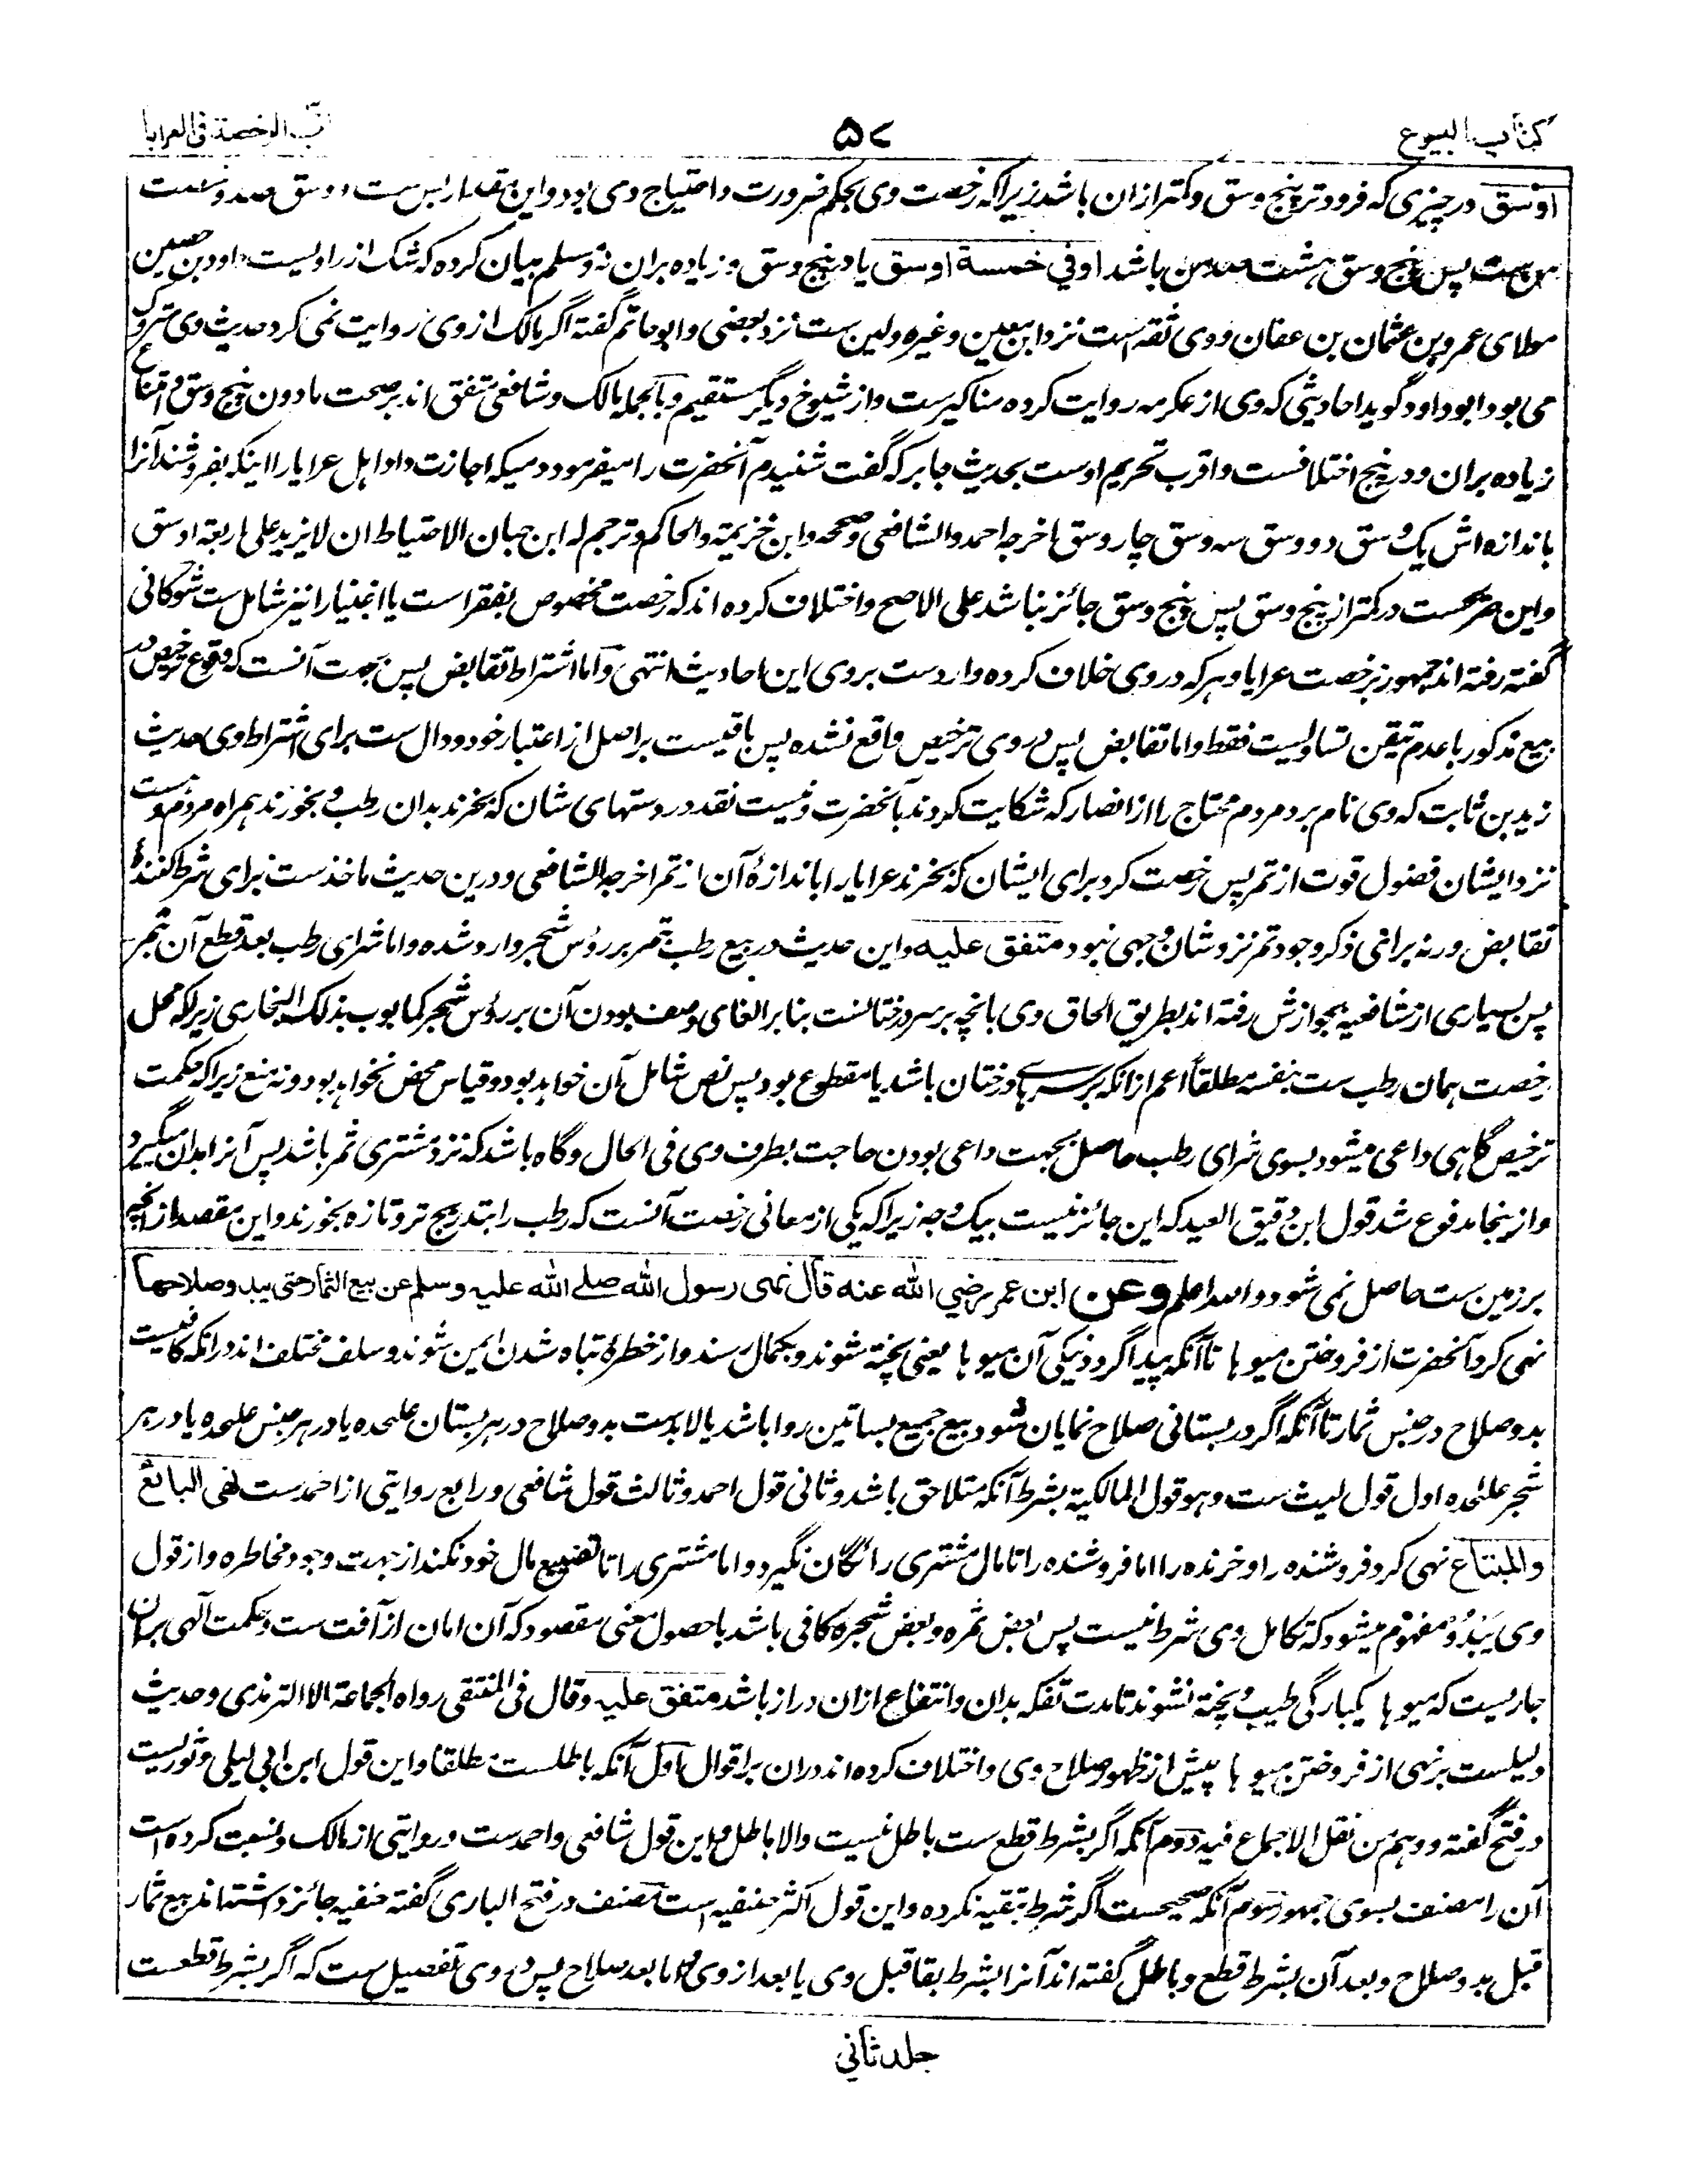 کتاب البیوع
۵۷
باب الرخصة فی العرایا
اوسق در چیزی که فرودتر پنج وسق و کمتر ازان باشد زیرا که رخصت وی بحکم ضرورت و احتیاج وی بود و این مقدار بس ست و وسق صد و شصت
من ست پس پنج وسق هشت صد من باشد او في خمسة اوسق یا در پنج وسق و زیاده بران نه و مسلم بیان کرده که شک از راویست داود بن حصین
مولای عمرو بن عثمان بن عفان و وی ثقه است نزد ابن معین و غیره ولین ست نزد بعضی و ابو حاتم گفته اگر مالک از وی روایت نمی کرد حدیث وی متروک
می بود ابو داود گوید احادیثی که وی از عکرمه روایت کرده مناکیرست و از شیوخ دیگر مستقیم و بالجمله مالک و شافعی متفق اند بر صحت مادون پنج وسق و امتناع
زیاده بران و در پنج اختلافست و اقرب تحریم اوست بحدیث جابر که گفت شنیدم آنحضرت را میفرمود دمیکه اجازت داد اهل عرایا را اینکه بفروشند آنرا
باندازه اش یک وسق دو وسق سه وسق چار وسق اخرجه احمد والشافعی وصححه وابن خزیمة والحاکم وترجم له ابن حبان الاحتیاط ان لا یزید علی اربعة اوسق
و این صریحست در کمتر از پنج وسق پس پنج وسق جائز نباشد علی الاصح و اختلاف کرده اند که رخصت مخصوص بفقر است یا اغنیا را نیز شامل ست شوکانی
گفته رفته اند جمهور بر رخصت عرایا و هر که در وی خلاف کرده واردست بروی این احادیث انتهی و اما اشتراط تقابض پس بجهت آنست که وقوع ترخیص در
بیع مذکور با عدم تیقن تساویست فقط و اما تقابض پس در وی ترخیص واقع نشده پس باقیست بر اصل از اعتبار خود و دال ست برای اشتراط وی حدیث
زید بن ثابت که وی نام برد مردم محتاج را از انصار که شکایت کردند بآنحضرت و نیست نقد در دستهای شان که بخرند بدان رطب و بخورند همراه مردم و هست
نزد ایشان فضول قوت از تمر پس رخصت کرد برای ایشان که بخرند عرایا را باندازهٔ آن از تمر اخرجه الشافعی و درین حدیث ماخذست برای شرط کنندهٔ
تقابض ورنه برای ذکر وجود تمر نزد شان وجهی نبود متفق علیه و این حدیث در بیع رطب بتمر بر رؤس شجر وارد شده و اما شرای رطب بعد قطع آن بتمر
پس بسیاری از شافعیه بجوازش رفته اند بطریق الحاق وی بانچه بر سر درختانست بنا بر الغای وصف بودن آن بر رؤس شجر کما بوب بذلک البخاری زیرا که محل
رخصت همان رطب ست بنفسه مطلقاً اعم از انکه بر سرهای درختان باشد یا مقطوع بود پس نص شامل آن خواهد بود و قیاس محض نخواهد بود و نه منع زیرا که حکمت
ترخیص گاهی داعی میشود بسوی شرای رطب حاصل بجهت داعی بودن حاجت بطرف وی فی الحال و گاه باشد که نزد مشتری ثمر باشد پس آنرا بدان میگیرد
و ازینجا مدفوع شد قول ابن دقیق العید که این جائز نیست بیک وجه زیرا که یکی از معانی رخصت آنست که رطب را بتدریج تر و تازه بخورند و این مقصد از انچه
بر زمین ست حاصل نمی شود والله اعلم وعن ابن عمر رضي الله عنه قال نهى رسول الله صلے الله علیه وسلم عن بیع الثمار حتى یبدو صلاحها
نهی کرد آنحضرت از فروختن میوها تا آنکه پیدا گردد نیکی آن میوها یعنی پخته شوند و بکمال رسند و از خطرهٔ تباه شدن ایمن شوند و سلف مختلف اند در انکه کافیست
بدو صلاح در جنس ثمار تا آنکه اگر در بستانی صلاح نمایان شود بیع جمیع بساتین روا باشد یا لابدست بدو صلاح در هر بستان علحده یا در هر جنس علحده یا در هر
شجر علحده اول قول لیث ست وهو قول المالکیة بشرط آنکه متلاحق باشد و ثانی قول احمد و ثالث قول شافعی و رابع روایتی از احمدست نهى البائع
والمبتاع نهی کرد فروشنده را و خرنده را اما فروشنده را تا مال مشتری رائگان نگیرد و اما مشتری را تا تضییع مال خود نکند از جهت وجود مخاطره و از قول
وی یَبْدُوَ مفهوم میشود که تکامل وی شرط نیست پس بعض ثمره و بعض شجره کافی باشد با حصول معنی مقصود که آن امان از آفت ست و حکمت الهی بران
جاریست که میوها یکبارگی طیب و پخته نشوند تا مدت تفکه بدان و انتفاع ازان دراز باشد متفق علیه وقال فی المنتقی رواه الجماعة الا الترمذی و حدیث
دلیلست بر نهی از فروختن میوها پیش از ظهور صلاح وی و اختلاف کرده اند دران بر اقوال اول آنکه باطلست مطلقا و این قول ابن ابی لیلی و ثوریست
در فتح گفته ووهم من نقل الاجماع فیه دوم آنکه اگر بشرط قطع ست باطل نیست والا باطل و این قول شافعی و احمدست و روایتی از مالک و نسبت کرده است
آن را مصنف بسوی جمهور سوم آنکه صحیحست اگر شرط تبقیه نکرده و این قول اکثر حنفیه است مصنف در فتح الباری گفته حنفیه جائز داشته اند بیع ثمار
قبل بدو صلاح و بعد آن بشرط قطع و باطل گفته اند آنرا بشرط بقا قبل وی یا بعد از وی و اما بعد صلاح پس در وی تفصیل ست که اگر بشرط قطعست
جلد ثانی